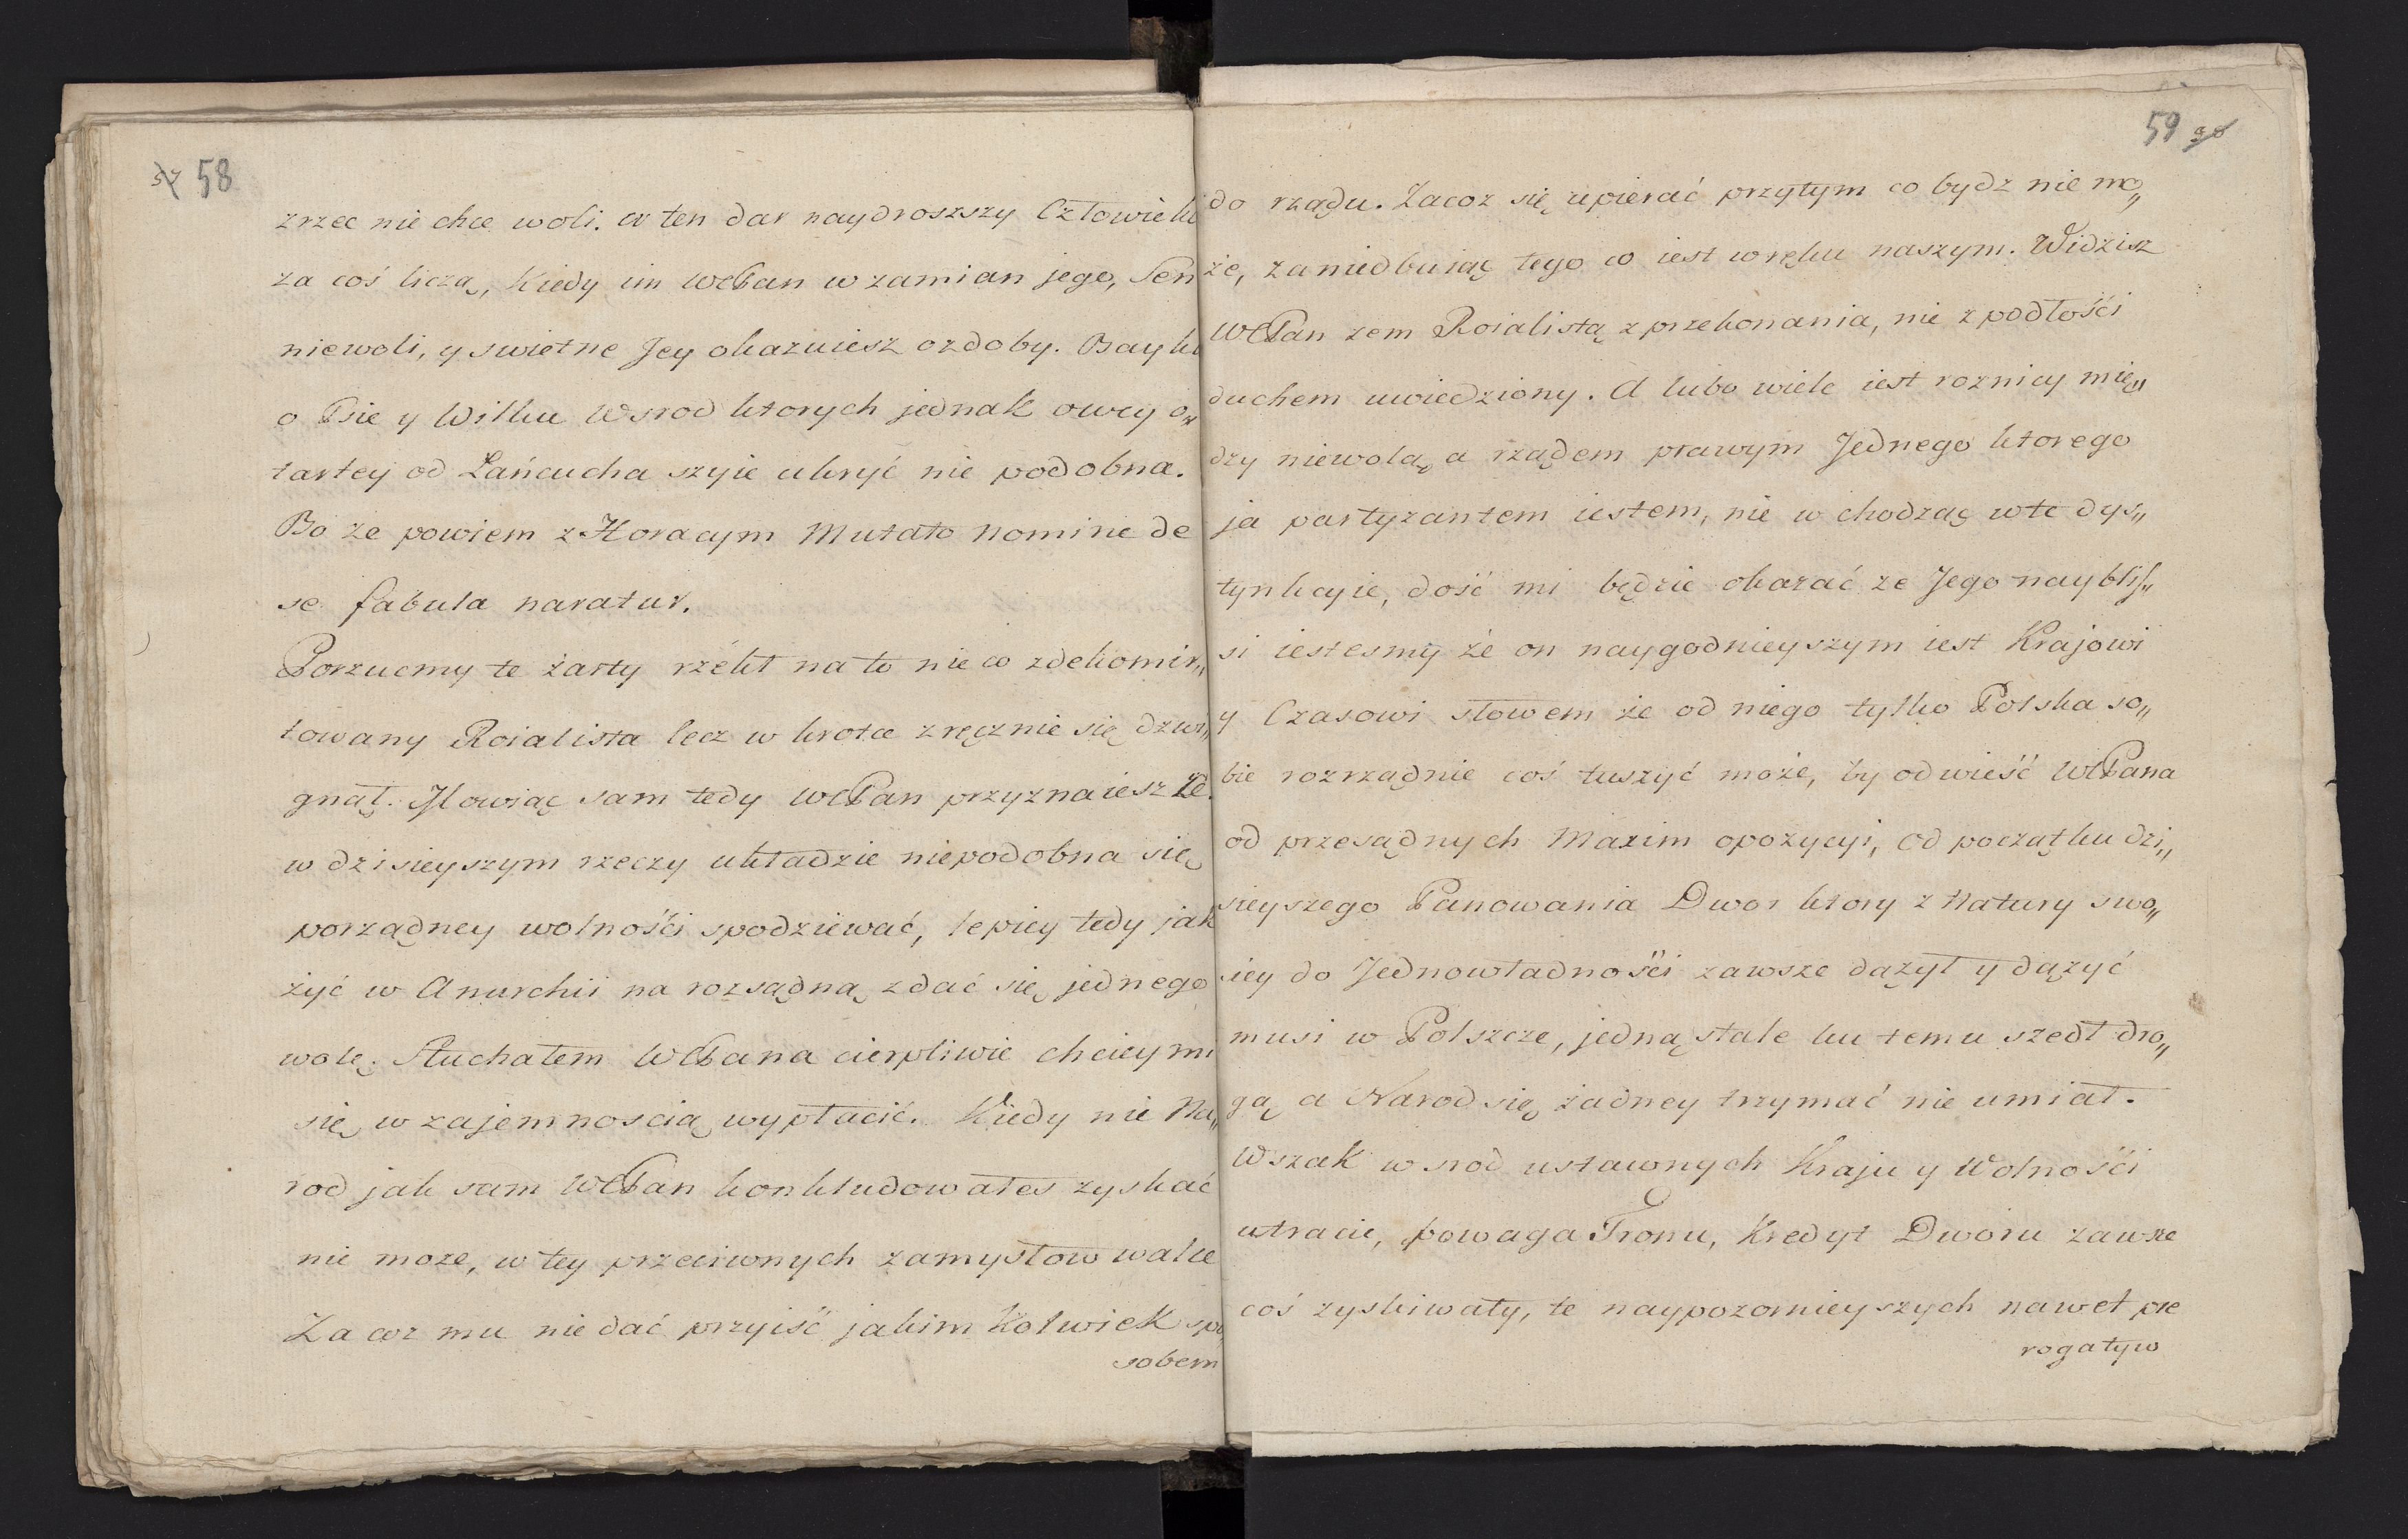 57 58
zrzec nie chce woli. a ten dar naydroszszy Człowieki
za coś liczą, Kiedy im WCPan w zamian jego, Sen
niewoli, y swietne Jey okazuiesz ozdoby. Bayki
o Psie y Wilku Wsrod ktorych jednak owey o„
tartey od Łańcucha szyie ukryć nie podobna.
Bo że powiem z Horacym Mutato nomine de
se fabula naratur.
Porzucmy te żarty rzékł na to nie co zdekomir„
towany Roialista lecz w krotce zręcznie się dzwi„
gnął. Mowiąc sam tedy WCPan przyznaiesz że
w dzisieyszym rzeczy układzie niepodobna się
porządney wolnośći spodziewać, lepiey tedy jak
żyć w Anarchii na rozsądną zdać się jednego
wolę. Słuchałem WCPana cierpliwie chciey mi
się wzajemnoscią wypłacić. Kiedy nie Na„
rod jak sam WCPan konkludowałes zyskać
nie moze, w tey przeciwnych zamysłow walce
Za coz mu nie dać przyiść jakim Kolwiek spo„
sobem
59 58
do rządu. Zacoz się upierać przytym co bydz nie mo„
że, zaniedbuiąc tego co iest w ręku naszym. Widzisz
WCPan zem Roialistą z przekonania, nie z podłośći
duchem uwiedziony. A lubo wiele iest roznicy mię„
dzy niewolą, a rządem prawym Jednego ktorego
ja partyzantem iestem, nie w chodząc w te dys„
tynkcyie, dość mi będzie okazać ze Jego nayblis„
si iestesmy że on naygodnieyszym iest Krajowi
y Czasowi słowem że od niego tylko Polska so„
bie rozrządnie coś tuszyć może, by odwieść WCPana
od przesądnych Maxim opozycyi, od początku dzi„
sieyszego Panowania Dwor ktory z Natury swo„
iey do Jednowładnośći zawsze dązył y dązyć
musi w Polszcze, jedną stale ku temu szedł dro„
gą a Narod się żadney trzymać nie umiał.
Wszak w srod ustawnych Kraju y Wolnośći
utracie, powaga Tronu, Kredyt Dworu zawsze
coś zyskiwały, te naypozornieyszych nawet pre
rogatyw